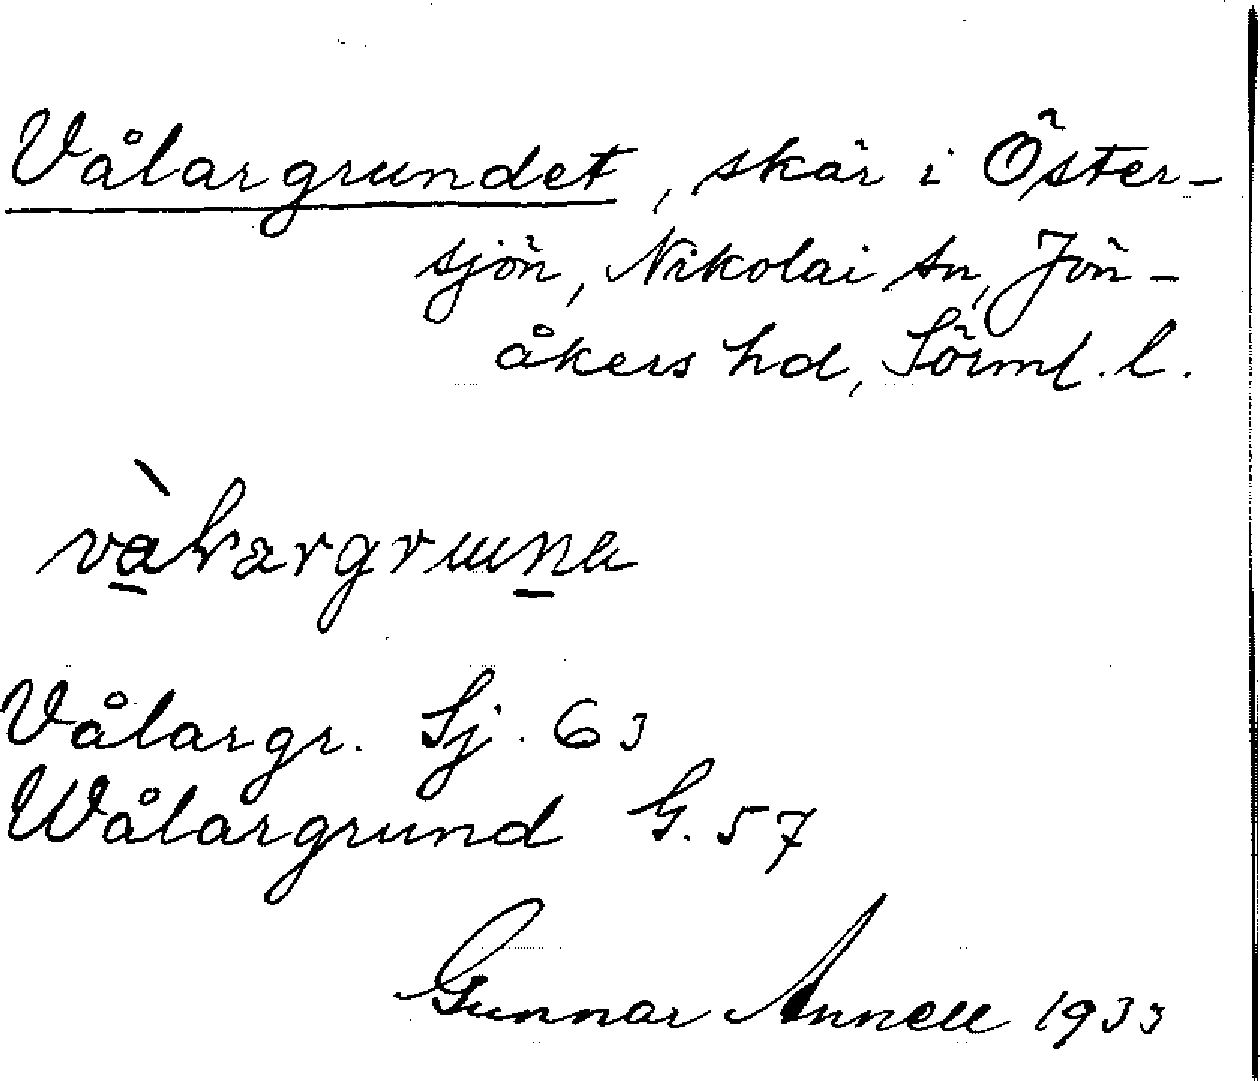 Vålargrundet, skär i Öster-
sjön, Nikolai sn, Jön-
åkers hd, Sörml. l.
Vålargr. Sj. 63
Wålargrund G. 57
Gunnar Annell 1933